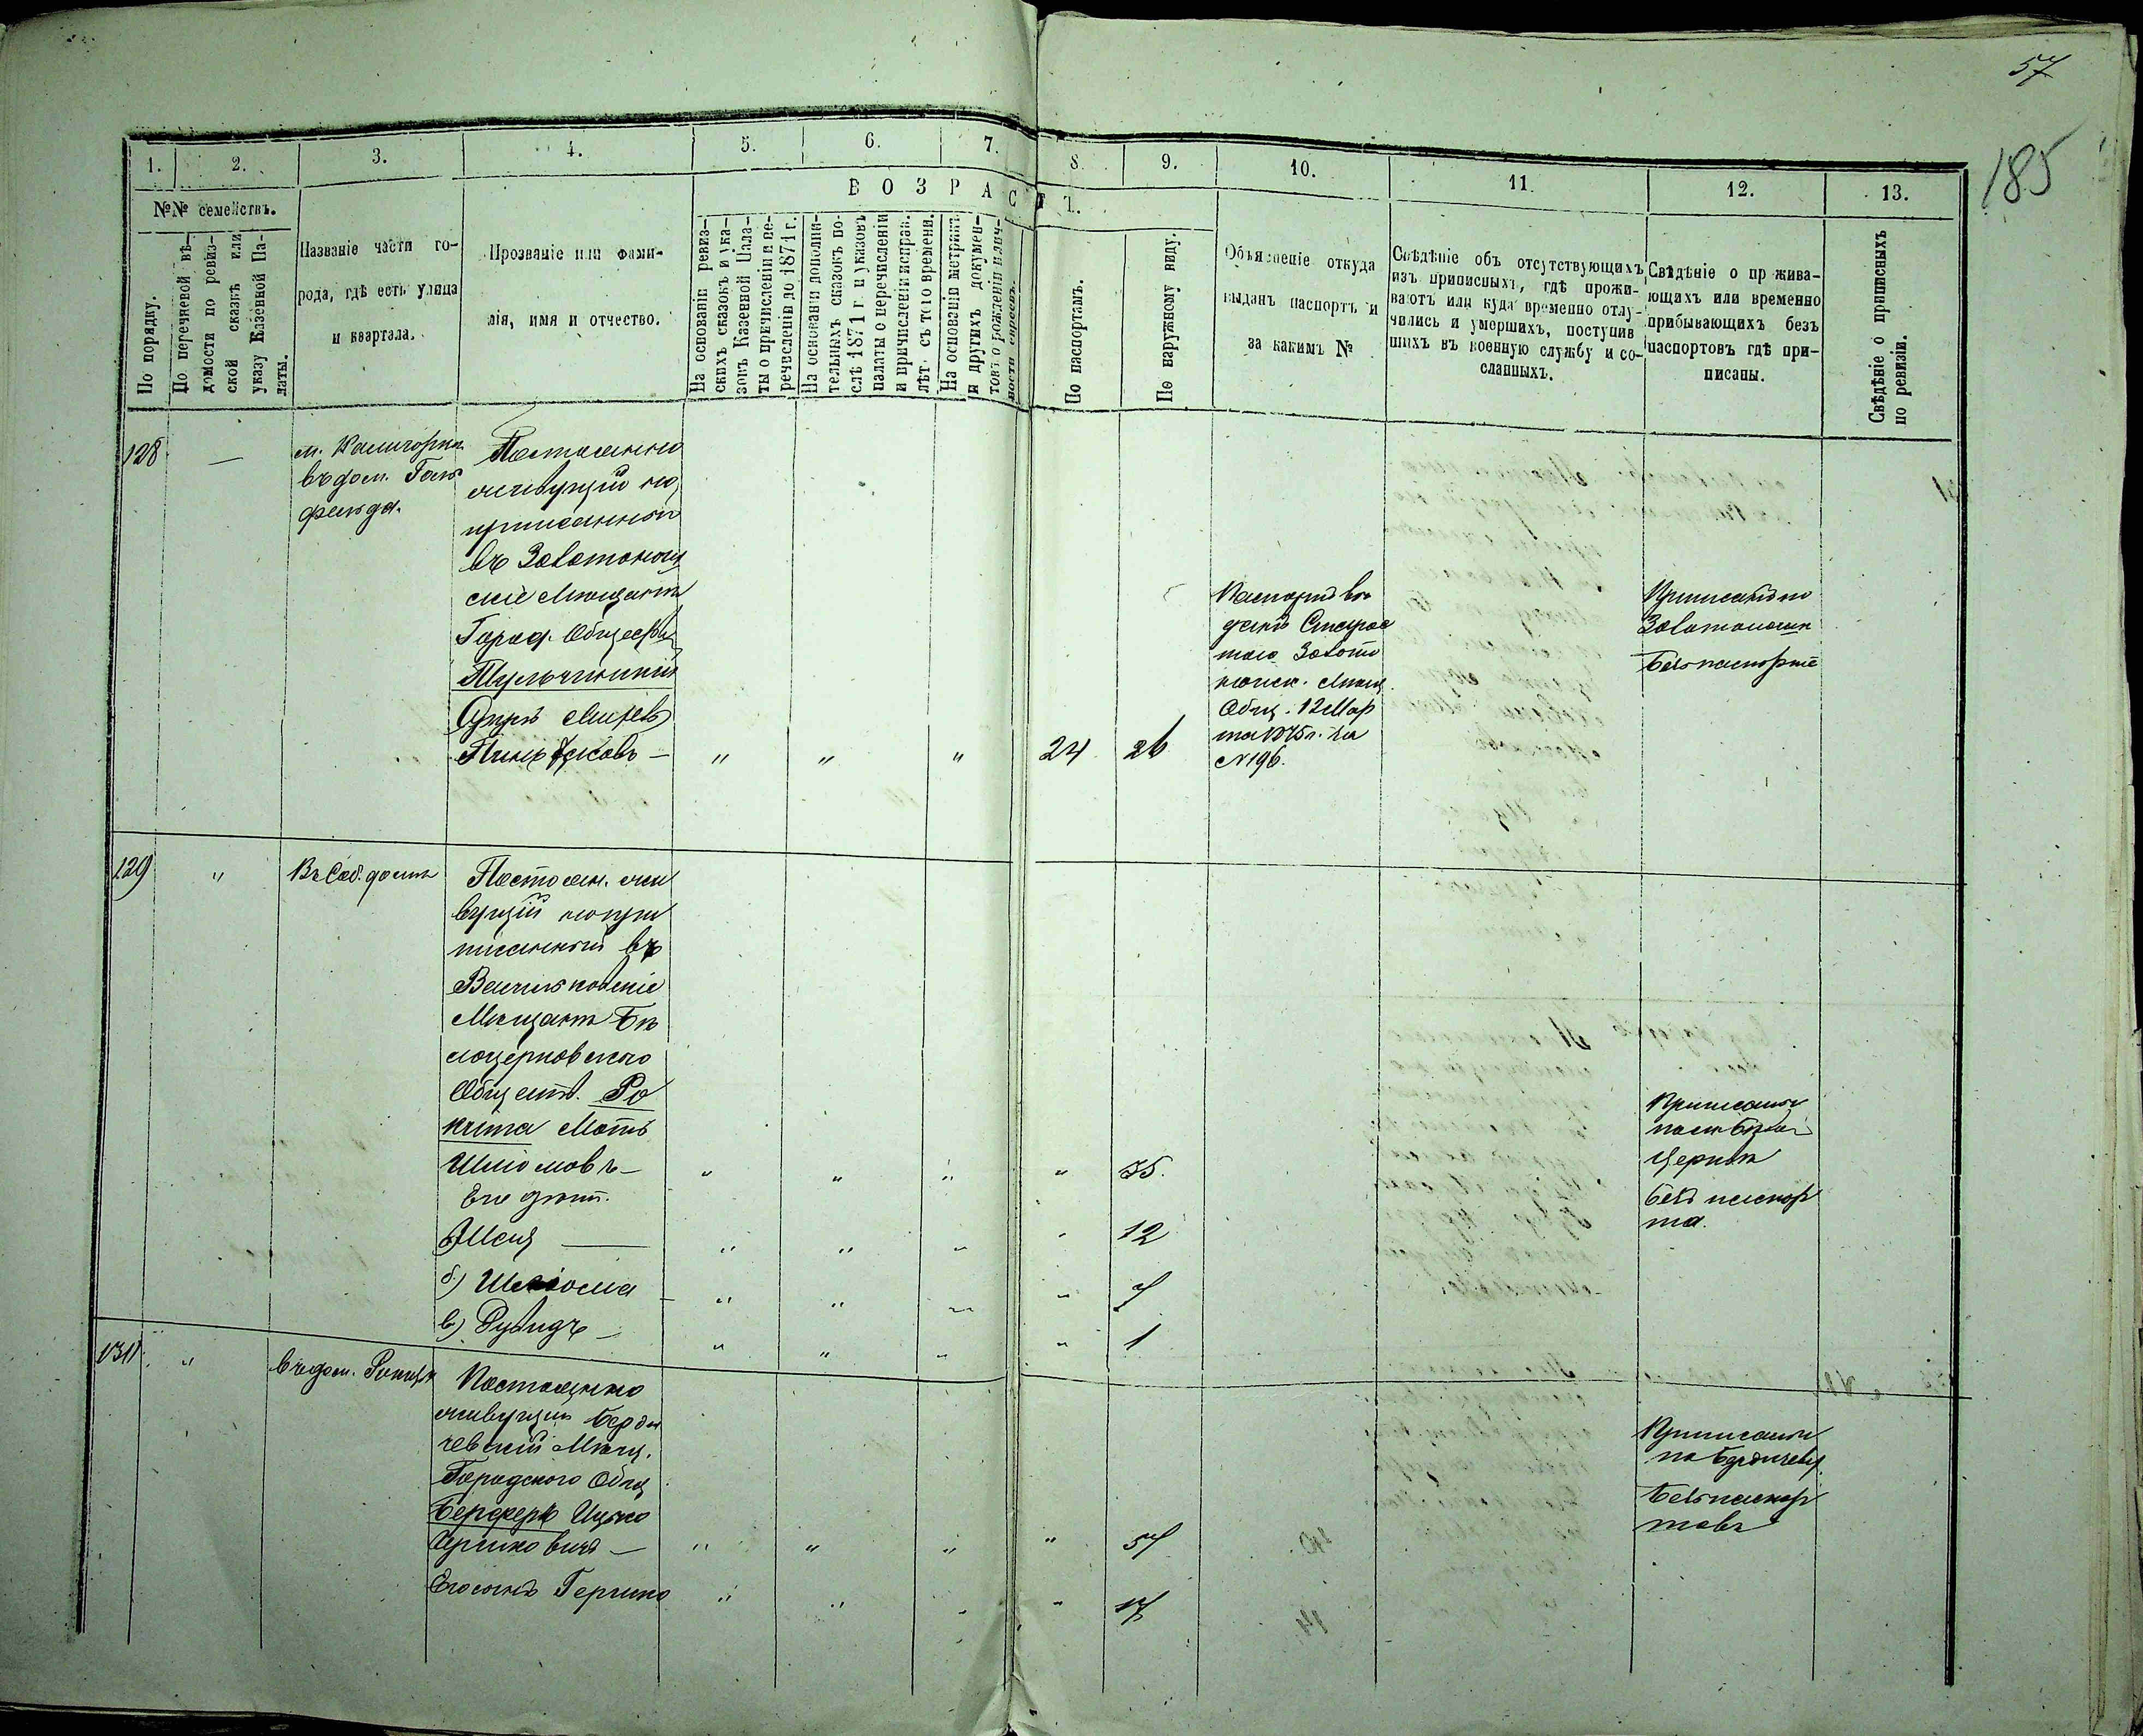 57
185
1.
2.
3.
4.
5.
6.
7.
8.
9.
10.
11.
12.
13.
№№ семействъ.
По порядку.
По перечневой вѣ-
домости по ревиз-
ской сказкѣ или
указу Казенной Па-
латы.
Названіе части го-
рода, гдѣ есть улица
и квартала.
Прозваніе или фами-
лія, имя и отчество.
ВОЗРАСТ
На основаніи ревиз-
скихъ сказокъ и ука-
зовъ Казенной Пала-
ты о причисленіи и пе-
речисленіи до 1871 г.
На основаніи дополни-
тельныхъ сказокъ по-
слѣ 1871 г и указовъ
палаты о перечисленіи
и причисленіи исправ.
лѣт. съ того времени.
На основаніи метрикъ
и другихъ докумен-
товъ о рожденіи и лич-
ности евреевъ.
По паспортамъ.
По наружному виду.
Объясненіе откуда
выданъ паспортъ и
за какимъ №
Свѣдѣніе объ отсутствующихъ
изъ приписныхъ, гдѣ прожи-
ваютъ или куда временно отлу-
чились и умершихъ, поступив
шихъ въ военную службу и со-
сланныхъ.
Свѣдѣніе о прожива-
ющихъ или временно
прибывающихъ безъ
паспортовъ гдѣ при-
писаны.
Свѣдѣніе о приписныхъ
по ревизіи.
128
—
м. Калигорка
въ дом.
Постоянно
живущій но
приписанный
въ Золотонош
скіе Мещане
Город. Обществ
Тульчинскій
— " " " 24 26
Паспортъ вы
данъ Старос
тою Золото
ношск. Мѣщ.
Общ. 12 Мар
та 1875 г. за
№ 196.
Приписанъ по
Золотоношѣ
безъ паспорта
129
"
Въ Соб. домѣ
Постоян. жи
вущій но при
писанный въ
Васильковскіе
Мѣщане Бѣ
лоцерковского
Обществ. Ро
кита Мотъ
Шліомовъ — " " " " 35.
Его дѣти.
— " " " " 12
б) Шліома — " " " " 7
в) Рувидъ — " " " " 1
Приписаны
по м. Бѣлой
Церкви
безъ паспор
та.
130
"
въ дом. Рокиты
Постоянно
живущій Берди
чевскій Мѣщ.
Городского Общ
Ицько
— " " " " 57
Его сынъ Гершко " " " " 17
Приписаны
по Бердичеву
безъ паспор
товъ